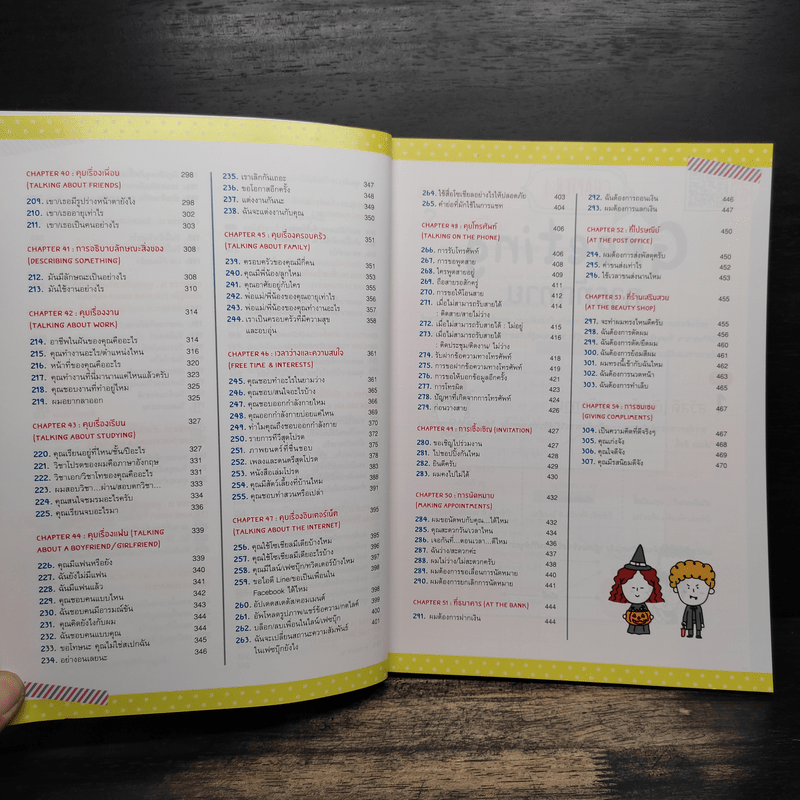 CHAPTER 40 : คุยเรื่องเพื่อน 298
(TALKING ABOUT FRIENDS)
209. เขา/เธอมีรูปร่างหน้าตายังไง 298
210. เขา/เธออายุเท่าไร 302
211. เขา/เธอเป็นคนอย่างไร 303
CHAPTER 41 : การอธิบายลักษณะสิ่งของ 308
(DESCRIBING SOMETHING)
212. มันมีลักษณะเป็นอย่างไร 308
213. มันใช้งานอย่างไร 310
CHAPTER 42 : คุยเรื่องงาน 314
(TALKING ABOUT WORK)
214. อาชีพในฝันของคุณคืออะไร 314
215. คุณทำงานอะไร/ตำแหน่งไหน 316
216. หน้าที่ของคุณคืออะไร 320
217. คุณทำงานที่นี่มานานแค่ไหนแล้วครับ 323
218. คุณชอบงานที่ทำอยู่ไหม 325
219. ผมอยากลาออก 325
CHAPTER 43 : คุยเรื่องเรียน 327
(TALKING ABOUT STUDYING)
220. คุณเรียนอยู่ที่ไหน/ชั้น/ปีอะไร 327
221. วิชาโปรดของผมคือภาษาอังกฤษ 331
222. วิชาเอก/วิชาโทของคุณคืออะไร 331
223. ผมสอบวิชา...ผ่าน/สอบตกวิชา... 333
224. คุณสนใจชมรมอะไรครับ 334
225. คุณเรียนจบอะไรมา 336
CHAPTER 44 : คุยเรื่องแฟน (TALKING 339
ABOUT A BOYFRIEND/GIRLFRIEND)
226. คุณมีแฟนหรือยัง 339
227. ฉันยังไม่มีแฟน 340
228. ฉันมีแฟนแล้ว 341
229. คุณชอบคนแบบไหน 342
230. ฉันชอบคนมีอารมณ์ขัน 342
231. คุณคิดยังไงกับผม 344
232. ฉันชอบคนแบบคุณ 344
233. ขอโทษนะ คุณไม่ใช่สเปกฉัน 345
234. อย่างอนเลยนะ 346
235. เราเลิกกันเถอะ 347
236. ขอโอกาสอีกครั้ง
237. แต่งงานกันนะ 349
238. ฉันจะแต่งงานกับคุณ 350
CHAPTER 45 : คุยเรื่องครอบครัว 351
(TALKING ABOUT FAMILY)
239. ครอบครัวของคุณมีกี่คน 351
240. คุณมีพี่น้อง/ลูกไหม 353
241. คุณอาศัยอยู่กับใคร 355
242. พ่อแม่/พี่น้องของคุณอายุเท่าไร 356
243. พ่อแม่/พี่น้องของคุณทำงานอะไร 357
244. เราเป็นครอบครัวที่มีความสุข 358
และอบอุ่น
CHAPTER 46 : เวลาว่างและความสนใจ 361
(FREE TIME & INTERESTS)
245. คุณชอบทำอะไรในยามว่าง 361
246. คุณชอบ/สนใจอะไรบ้าง 365
247. คุณชอบออกกำลังกายไหม 368
248. คุณออกกำลังกายบ่อยแค่ไหน 369
249. ทำไมคุณถึงชอบออกกำลังกาย 370
250. รายการทีวีสุดโปรด 372
251. ภาพยนตร์ที่ชื่นชอบ 375
252. เพลงและดนตรีสุดโปรด 377
253. หนังสือเล่มโปรด 382
254. คุณมีสัตว์เลี้ยงที่บ้านไหม 388
255. คุณชอบทำสวนหรือเปล่า 391
CHAPTER 47 : คุยเรื่องอินเตอร์เน็ต 395
(TALKING ABOUT THE INTERNET)
256. คุณใช้โซเชียลมีเดียบ้างไหม 395
257. คุณใช้โซเชียลมีเดียอะไรบ้าง 396
258. คุณมีไลน์/เฟซบุ๊ก/ทวิตเตอร์บ้างไหม 398
259. ขอไอดี Line/ขอเป็นเพื่อนใน 398
Facebook ได้ไหม
260. อัปเดตสเตตัส/คอมเมนต์ 399
261. อัพโหลดรูปภาพ/แชร์ข้อความ/กดไลค์ 400
262. บล็อก/ลบเพื่อนในไลน์/เฟซบุ๊ก 401
263. ฉันจะเปลี่ยนสถานะความสัมพันธ์
ในเฟซบุ๊กยังไง
264. ใช้สื่อโซเชียลอย่างไรให้ปลอดภัย 403
265. คำย่อที่มักใช้ในการแชท 404
CHAPTER 48 : คุยโทรศัพท์ 406
(TALKING ON THE PHONE)
266. การรับโทรศัพท์ 406
267. การขอพูดสาย 408
268. ใครพูดสายอยู่ 409
269. ถือสายรอสักครู่ 411
270. การขอให้โอนสาย 412
271. เมื่อไม่สามารถรับสายได้ 414
: ติดสาย/สายไม่ว่าง
272. เมื่อไม่สามารถรับสายได้ : ไม่อยู่ 415
273. เมื่อไม่สามารถรับสายได้ 416
: ติดประชุม/ติดงาน/ ไม่ว่าง
274. รับฝากข้อความทางโทรศัพท์ 418
275. การขอฝากข้อความทางโทรศัพท์ 419
276. การขอให้บอกข้อมูลอีกครั้ง 421
277. การโทรผิด 423
278. ปัญหาที่เกิดจากการโทรศัพท์ 424
279. ก่อนวางสาย 426
CHAPTER 49 : การเชื้อเชิญ (INVITATION) 427
280. ขอเชิญไปร่วมงาน 427
281. ไปชอปปิ้งกันไหม 428
282. ยินดีครับ 429
283. ผมคงไปไม่ได้ 430
CHAPTER 50 : การนัดหมาย 432
(MAKING APPOINTMENTS)
284. ผมขอนัดพบกับคุณ...ได้ไหม 432
285. คุณสะดวกวันเวลาไหน 432
286. เจอกันที่...ตอนเวลา...ดีไหม 436
287. ฉันว่าง/สะดวกค่ะ 437
288. ผมไม่ว่าง/ไม่สะดวกครับ 438
289. ผมต้องการขอเลื่อนการนัดหมาย 440
290. ผมต้องการยกเลิกการนัดหมาย 441
CHAPTER 51 : ที่ธนาคาร (AT THE BANK) 444
291. ผมต้องการฝากเงิน 444
292. ฉันต้องการถอนเงิน 446
293. ผมต้องการแลกเงิน 447
CHAPTER 52 : ที่ไปรษณีย์ 450
(AT THE POST OFFICE)
294. ผมต้องการส่งพัสดุครับ 450
295. ค่าขนส่งเท่าไร 452
296. ใช้เวลาขนส่งนานไหม 453
CHAPTER 53 : ที่ร้านเสริมสวย 455
(AT THE BEAUTY SHOP)
297. จะทำผมทรงไหนดีครับ 455
298. ฉันต้องการตัดผม 456
299. ฉันต้องการดัด/ยืดผม 459
300. ฉันต้องการย้อมสีผม 460
301. ผมทรงนี้เข้ากับฉันไหม 461
302. ฉันต้องการนวดหน้า 462
303. ฉันต้องการทำเล็บ 465
CHAPTER 54 : การชมเชย 467
(GIVING COMPLIMENTS)
304. เป็นความคิดที่ดีจริงๆ 467
305. คุณเก่งจัง 468
306. คุณใจดีจัง 469
307. คุณมีรสนิยมดีจัง 470